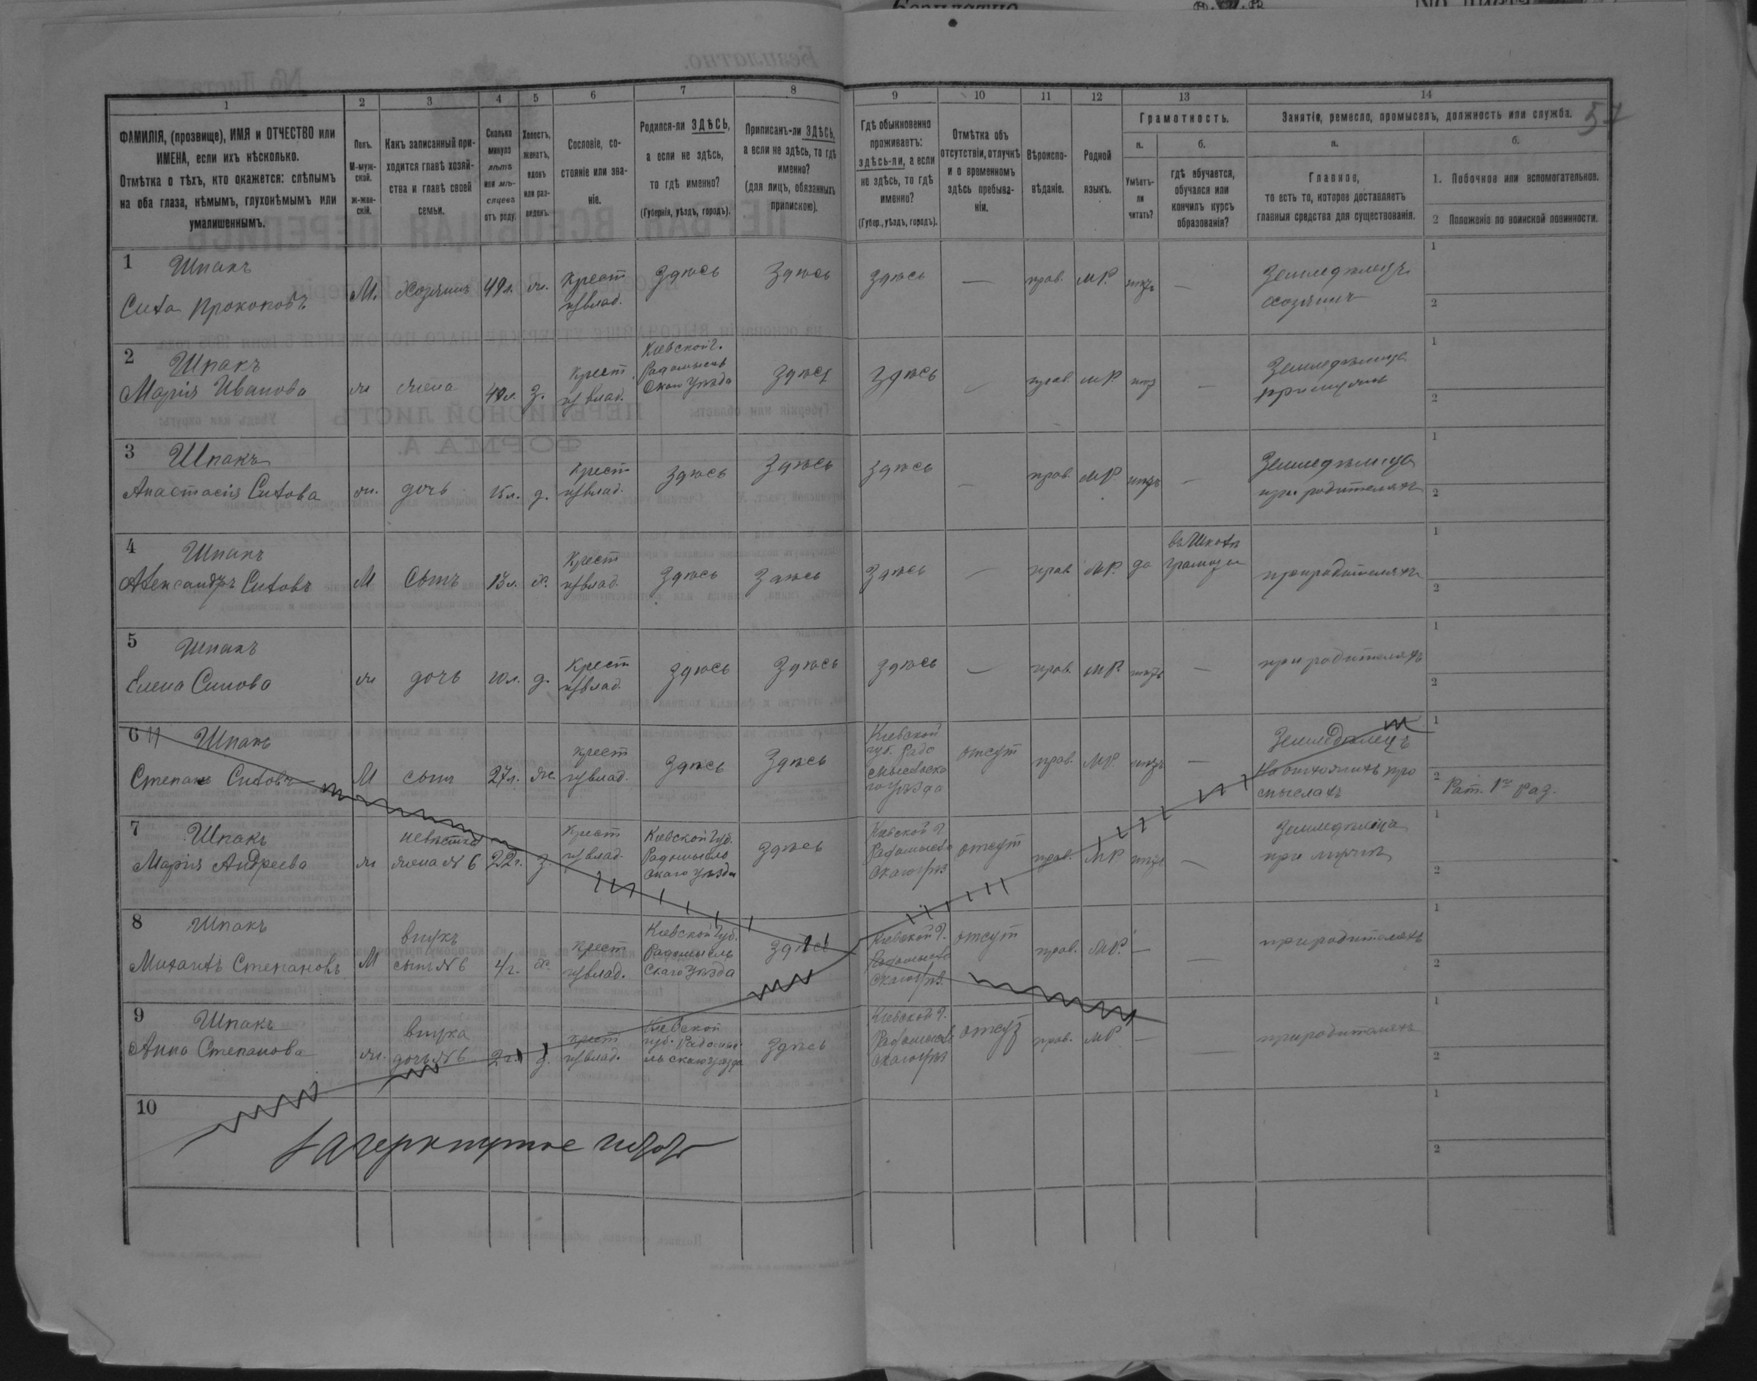 57
1 2 3 4 5 6 7 8 9 10 11 12 13 14
ФАМИЛІЯ, (прозвище), ИМЯ и ОТЧЕСТВО или
ИМЕНА, если ихъ нѣсколько.
Отмѣтка о тѣхъ, кто окажется: слѣпымъ
на оба глаза, нѣмымъ, глухонѣмымъ или
умалишеннымъ.
Полъ.
М-муж-
ской.
ж-жен-
скій.
Какъ записанный при-
ходится главѣ хозяй-
ства и главѣ своей
семьи.
Сколько
минуло
лѣтъ
или мѣ-
сяцевъ
отъ роду.
Холостъ,
женатъ,
вдовъ
или раз-
веденъ.
Сословіе, со-
стояніе или зва-
ніе.
Родился-ли ЗДѢСЬ,
а если не здѣсь,
то гдѣ именно?
(Губернія, уѣздъ, городъ).
Приписанъ-ли ЗДѢСЬ,
а если не здѣсь, то гдѣ
именно?
(для лицъ, обязанныхъ
припискою).
Гдѣ обыкновенно
проживаетъ:
здѣсь-ли, а если
не здѣсь, то гдѣ
именно?
(Губер., уѣздъ, городъ).
Отмѣтка объ
отсутствіи, отлучкѣ
и о временномъ
здѣсь пребыва-
ніи.
Вѣроиспо-
вѣданіе.
Родной
языкъ.
Грамотность.
а.
Умѣетъ-
ли
читать?
б.
гдѣ обучается,
обучался или
кончилъ курсъ
образованія?
Занятіе, ремесло, промыселъ, должность или служба.
а.
Главное,
то есть то, которое доставляетъ
главныя средства для существованія.
б.
1. Побочное или вспомогательное.
2 Положеніе по воинской повинности.
1 Шпакъ
Сила Прокоповъ
М. хозяинъ 49л. ж. Крест. Здѣсь Здѣсь Здѣсь — прав. МР. нѣтъ — Земледѣлецъ
хозяинъ
1
2
2 Шпакъ
Марія Иванова
ж жена з. Крест. Кіевской г. Здѣсь Здѣсь — прав. МР. нѣтъ — Земледѣлица
при мужѣ
1
2
3 Шпакъ
Анастасія Силова
ж. дочь 15л. д. Крест. Здѣсь Здѣсь Здѣсь — прав МР нѣтъ — Земледѣлица
при родителяхъ
1
2
4 Шпакъ
Александръ Силовъ
М сынъ х. Крест Здѣсь Здѣсь Здѣсь — прав МР. да въ Школѣ
грамоты
при родителяхъ
1
2
5 Шпакъ
Елена Силова
ж дочь 10л. д. Крест Здѣсь Здѣсь Здѣсь — прав. МР нѣтъ — при родителяхъ
1
2
6 Шпакъ
Степанъ Силовъ
М сынъ 27л. ж. Крест Здѣсь Здѣсь Кіевской
губ. Радо
мысльско
го уѣзда
отсут прав. МР нѣтъ — Земледѣлецъ
на отхожихъ про
мыслахъ
1
2 Рат. 1го раз.
7 Шпакъ
Марія Андреева
ж невѣстка
жена №6 22г. з Крест Кіевской Губ.
Радомысль
скаго уѣзда
здѣсь отсут прав. МР нѣтъ — Земледѣлица
при мужѣ
1
2
8 Шпакъ
Михаилъ Степановъ
М внукъ
сынъ №6 4г. х. Крест Кіевской Губ.
Радомысль
скаго уѣзда
здѣсь отсут прав. МР. — — при родителяхъ
1
2
9 Шпакъ
Анна Степанова
ж. внука
дочь №6 2г. д. Крест Кіевской
губ. Радомы
здѣсь отсут прав. МР — при родителяхъ
1
2
10
1
2